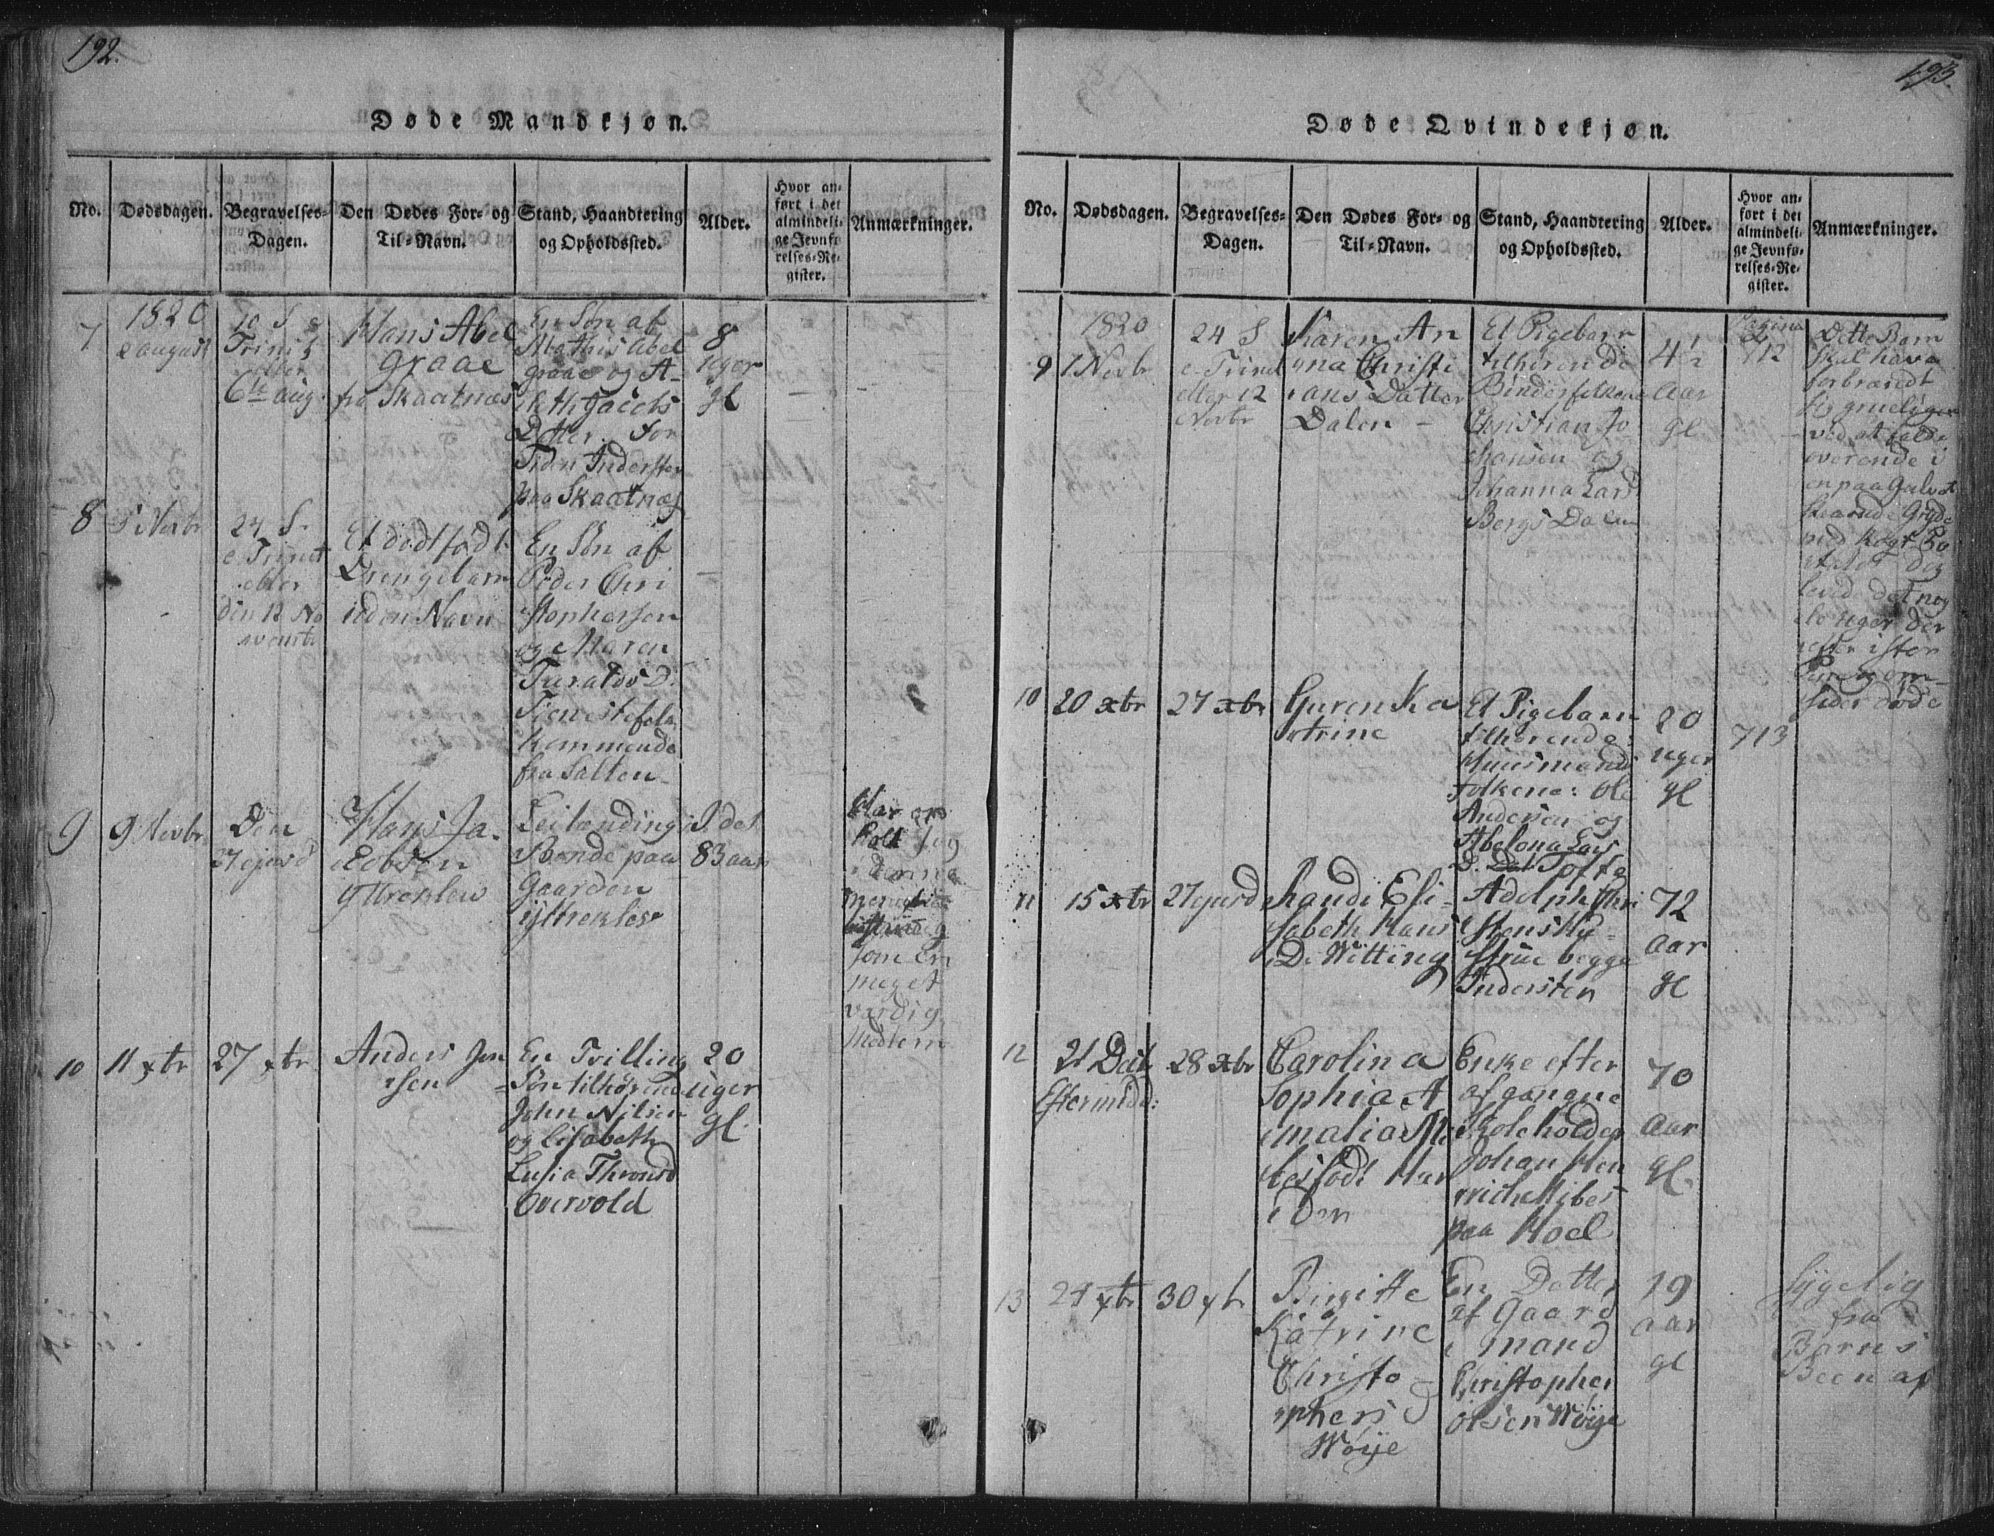 192.
Døde Mandkjøn.
No.
Dødsdagen.
Begravelses-
Dagen.
Den Dødes For- og
Til-Navn.
Stand, Haandtering
og Opholdssted.
Alder.
Hvor an-
ført i det
almindeli-
ge Jevnfø-
relses-Re-
gister.
Anmærkninger.
7
1820
2 august
10 S e
Trinit
eller
6te aug.
Hans Abel
graae
fra Skaatnæs
En Søn af
Mathis Abel
graae og A-
leth Jacobs
Dtter. For
Tiden Inderster
paa Skaatnæs
8
uger
gl
8
5 Novbr
24 S.
e Trinit
eller
den 12 No
vembr
Et dødfødt
Drengebarn
uden Navn
En Søn af
Peder Chri
stophersen
og Maren
D.
Tienestefolk
kommende
fra Salten
9
9 Novbr
Den
27 ejusd
Hans Ja-
cobsen
yttreklew
Leilænding
Bonde paa
Gaarden
yttreklew
I det
83 aar
Har on
Holt sog
i denne
menighed
som en
meget
værdig
Medlem
10
11 xbr
27 xbr
Anders Jon
sen
En Tvilling
Søn tilhørende
John Nilsen
og Elisabeth
Lusia Thronsd
Overvold
20
uger
gl.
193.
Døde Qvindekjøn.
No.
Dødsdagen.
Begravelses-
Dagen.
Den Dødes For- og
Til-Navn.
Stand, Haandtering
og Opholdssted.
Alder.
Hvor an-
ført i det
almindeli-
ge Jevnfø-
relses-Re-
gister.
Anmærkninger.
9
1820
1 Novbr
24 S
e Trinit
eller 12
Novbr
Karen An
na Christi
ans Datter
Dalen
Et Pigebarn
tilhørende
Bønderfolkene
Christian Jo
hansen og
Johanna Lars
Bergs Dalen
4½
Aar
gl
Pagina
712
Dette Barn
skal have
forbrændt
sig gruelig
ved at falde
overende i
en paa Gulvet
staaende Gryde
med kogt
dog
levede det nog
le uger der
efter
om
sider døde
10
20 xbr
27 xbr
Guren Ka
trine
Et Pigebarn
tilhørende
Huusmands
Folkene: Ole
Andersen og
Abelona Lars
D. Dal Tofte
20
uger
gl
713
11
15 xbr
27 ejusd
Randi Eli-
sabeth Hans
D. Witting
Adolph Chri
stens Hu-
strue begge
Inderster
72
aar
gl
12
21 Dec
Eftermidd:
28 xbr
Carolina
Sophia A
malia
født Har
der
Enke efter
afgangne
Johan Hen
rich
paa Hoel
70
Aar
gl.
13
24 xbr
30 xbr
Birgitte
Katrine
Christo-
phers D
Wøye
En Datter
af Gaard
mand
Christopher
Olsen Wøye
19
aar
gl
Sygelig
fra
Barns
Been af